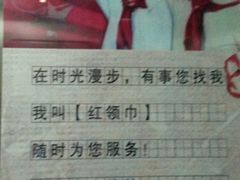 在时光漫步，有事您找我
我叫【红领巾】
随时为您服务！